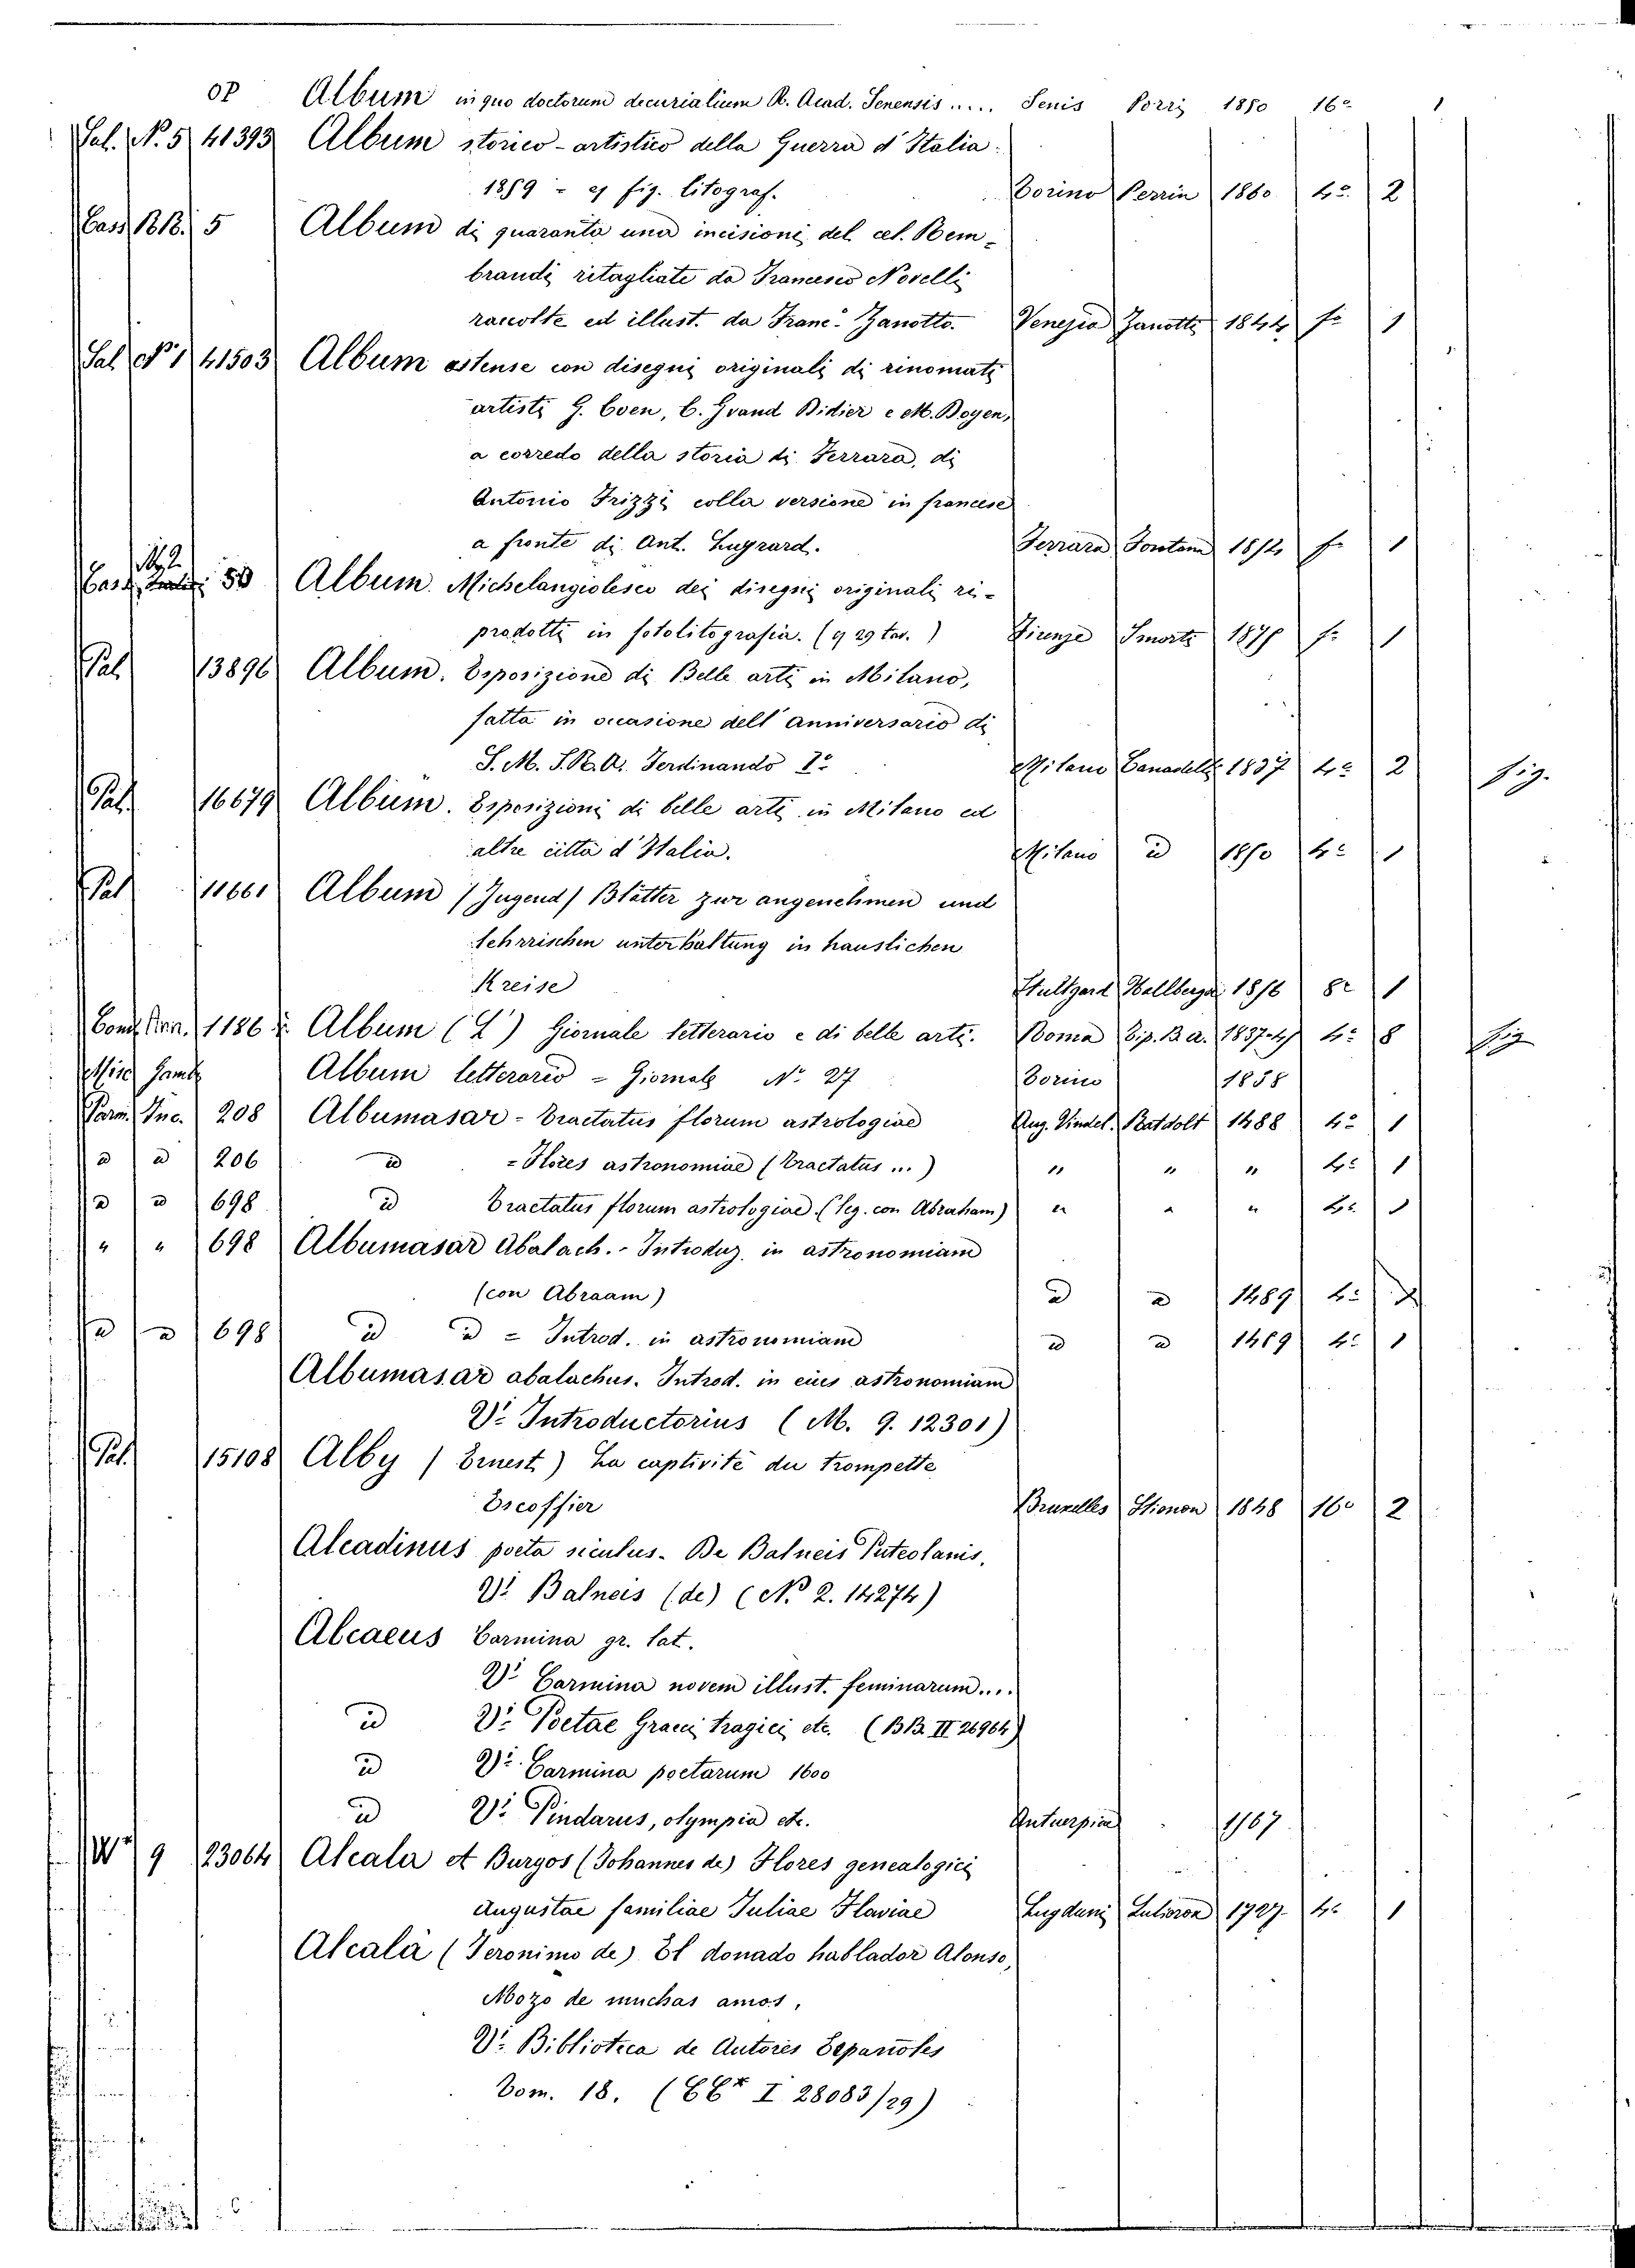 OP Album in quo doctorum decurialium R. Acad. Senensis ..... Senis Porri 1850 16º 1
Sal. Nº 5 41393 Album storico-artistico della Guerra d'Italia
1859 - cf fig. litograf. Torino Perrin 1860 4º 2
Cass BB. 5 Album di quaranta una incisioni del cel. Rem-
brandi ritagliate da Francesco Novelli
raccolte ed illust. da Franc. Zanotto. Venezia Zanotti 1844 fº 1
Sal Nº 1 41503 Album estense con disegni originali di rinomati
artisti G. Coen, C. Grand Didier e M. Doyen,
a corredo della storia di Ferrara, di
Antonio Frizzi colla versione in francese
a fronte di Ant. Lugrard. Ferrara Fontana fº 1
Cass 50 Album. Michelangiolesco dei disegni originali ri-
prodotti in fotolitografia. (cf 29 tav.) Firenze Smorti fº 1
Pal 13896 Album. Esposizione di Belle arti in Milano,
fatta in occasione dell'anniversario di
S. M. I. R. A. Ferdinando Iº Milano Canadelli 1837 4º 2 fig.
Pal. 16679 Album. Esposizioni di belle arti in Milano ed
altre città d'Italia. Milano id 1850 4º 1
Pal 11661 Album (Jugend) Blätter zur angenehmen und
lehrrischen unterhaltung in hauslichen
Kreise Stuttgard Hallberger 1856 8º 1
Cond. 1186 Album (L') Giornale letterario e di belle arti. Roma Tip. B. A. 1837-47 4º 8 fig
Misc Album letterario = Giornale Nº 27 Torino 1858
Parm. Inc. 208 Albumasar - Tractatus florum astrologiae Aug. Vindel. Ratdolt 1488 4º 1
id id 206 id = Flores astronomiae (Tractatus ...) " " " 4º 1
id id 698 id Tractatus florum astrologiae (leg. con Abraham) " " " 4º 1
" " 698 Albumasar Abalach. - Introduz. in astronomiam
(con Abraam) id id 1489 4º
id id 698 id id = Introd. in astronomiam id id 1489 4º 1
Albumasar abalachus. Introd. in eius astronomiam
Vº Introductorius (M. 9. 12301)
Pal. 15108 Alby (Ernest) La captivité du trompette
Escoffier Bruxelles Stienon 1848 16º 2
Alcadinus poeta siculus. De Balneis Puteolanis.
Vº Balneis (de) (Nº 2. 14274)
Alcaeus Carmina gr. lat.
Vº Carmina novem illust. feminarum....
id Vº Poetae Graeci tragici etc. (BB. II 26964)
id Vº Carmina poetarum 1600
id Vº Pindarus, olympia etc. Antuerpiae 1567
Wº 9 23064 Alcala et Burgos (Johannes de) Flores genealogici
Augustae familiae Juliae Flaviae Lugduni 1727 4º 1
Alcalà (Jeronimo de) El donado hablador Alonso,
Mozo de muchas amos,
Vº Biblioteca de Autores Espanoles
Tom. 18. (CCx I 28083/29)